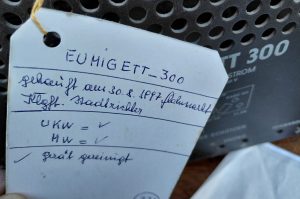 EUMIGETT_300
gekauft am 30.8.1997 Flohmarkt
Klgft. Stadtrichter
UKW = ✓
MW = ✓
✓ gerät gereinigt
TT 300
STROM